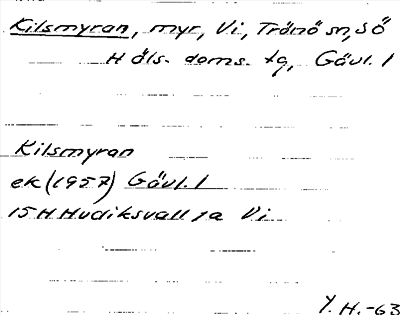 Kilsmyran, myr, Vi, Trönö sn, SÖ
Häls. doms. tg, Gävl. l
Kilsmyran
ek (1957) Gävl. l
15H Hudiksvall 1a Vi
Y. H. -63